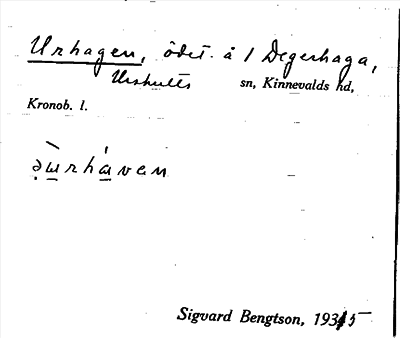 Urhagen, ödet. å 1 Degerhaga,
Urshults sn, Kinnevalds hd,
Kronob. l.
Sigvard Bengtson, 1935